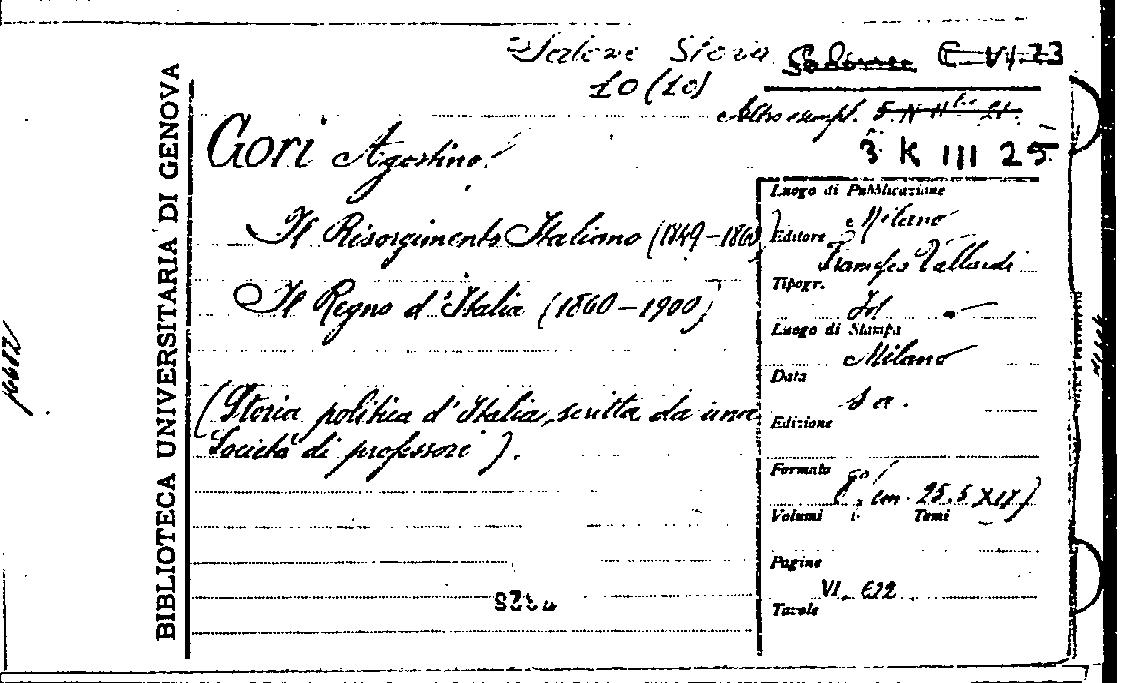 Salone Storia
10 (10)
Altro esempl.
3 K III 25
Gori Agostino
Il Risorgimento Italiano (1849-1860)
Il Regno d'Italia (1860-1900)
(Storia politica d'Italia, scritta da una
Società di professori).
BIBLIOTECA UNIVERSITARIA DI GENOVA
Luogo di Pubblicazione
Milano
Editore
Francesco Vallardi
Tipogr.
Id
Luogo di Stampa
Milano
Data
s a.
Edizione
Formato
8° (cm. 25.5
Volumi Tomi
Pagine
VI - 622
Tavole